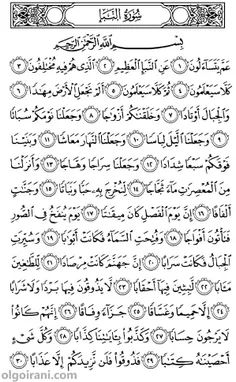 سُورَةُ النَّبَإِ
بِسْمِ اللَّهِ الرَّحْمَٰنِ الرَّحِيمِ
عَمَّ يَتَسَاءَلُونَ ١ عَنِ النَّبَإِ الْعَظِيمِ ٢ الَّذِي هُمْ فِيهِ مُخْتَلِفُونَ ٣
كَلَّا سَيَعْلَمُونَ ٤ ثُمَّ كَلَّا سَيَعْلَمُونَ ٥ أَلَمْ نَجْعَلِ الْأَرْضَ مِهَادًا ٦
وَالْجِبَالَ أَوْتَادًا ٧ وَخَلَقْنَاكُمْ أَزْوَاجًا ٨ وَجَعَلْنَا نَوْمَكُمْ سُبَاتًا
٩ وَجَعَلْنَا اللَّيْلَ لِبَاسًا ١٠ وَجَعَلْنَا النَّهَارَ مَعَاشًا ١١ وَبَنَيْنَا
فَوْقَكُمْ سَبْعًا شِدَادًا ١٢ وَجَعَلْنَا سِرَاجًا وَهَّاجًا ١٣ وَأَنْزَلْنَا
مِنَ الْمُعْصِرَاتِ مَاءً ثَجَّاجًا ١٤ لِنُخْرِجَ بِهِ حَبًّا وَنَبَاتًا ١٥ وَجَنَّاتٍ
أَلْفَافًا ١٦ إِنَّ يَوْمَ الْفَصْلِ كَانَ مِيقَاتًا ١٧ يَوْمَ يُنْفَخُ فِي الصُّورِ
فَتَأْتُونَ أَفْوَاجًا ١٨ وَفُتِحَتِ السَّمَاءُ فَكَانَتْ أَبْوَابًا ١٩ وَسُيِّرَتِ
الْجِبَالُ فَكَانَتْ سَرَابًا ٢٠ إِنَّ جَهَنَّمَ كَانَتْ مِرْصَادًا ٢١ لِلطَّاغِينَ
مَآبًا ٢٢ لَابِثِينَ فِيهَا أَحْقَابًا ٢٣ لَا يَذُوقُونَ فِيهَا بَرْدًا وَلَا شَرَابًا
٢٤ إِلَّا حَمِيمًا وَغَسَّاقًا ٢٥ جَزَاءً وِفَاقًا ٢٦ إِنَّهُمْ كَانُوا
لَا يَرْجُونَ حِسَابًا ٢٧ وَكَذَّبُوا بِآيَاتِنَا كِذَّابًا ٢٨ وَكُلَّ شَيْءٍ
أَحْصَيْنَاهُ كِتَابًا ٢٩ فَذُوقُوا فَلَنْ نَزِيدَكُمْ إِلَّا عَذَابًا ٣٠
olgoirani.com